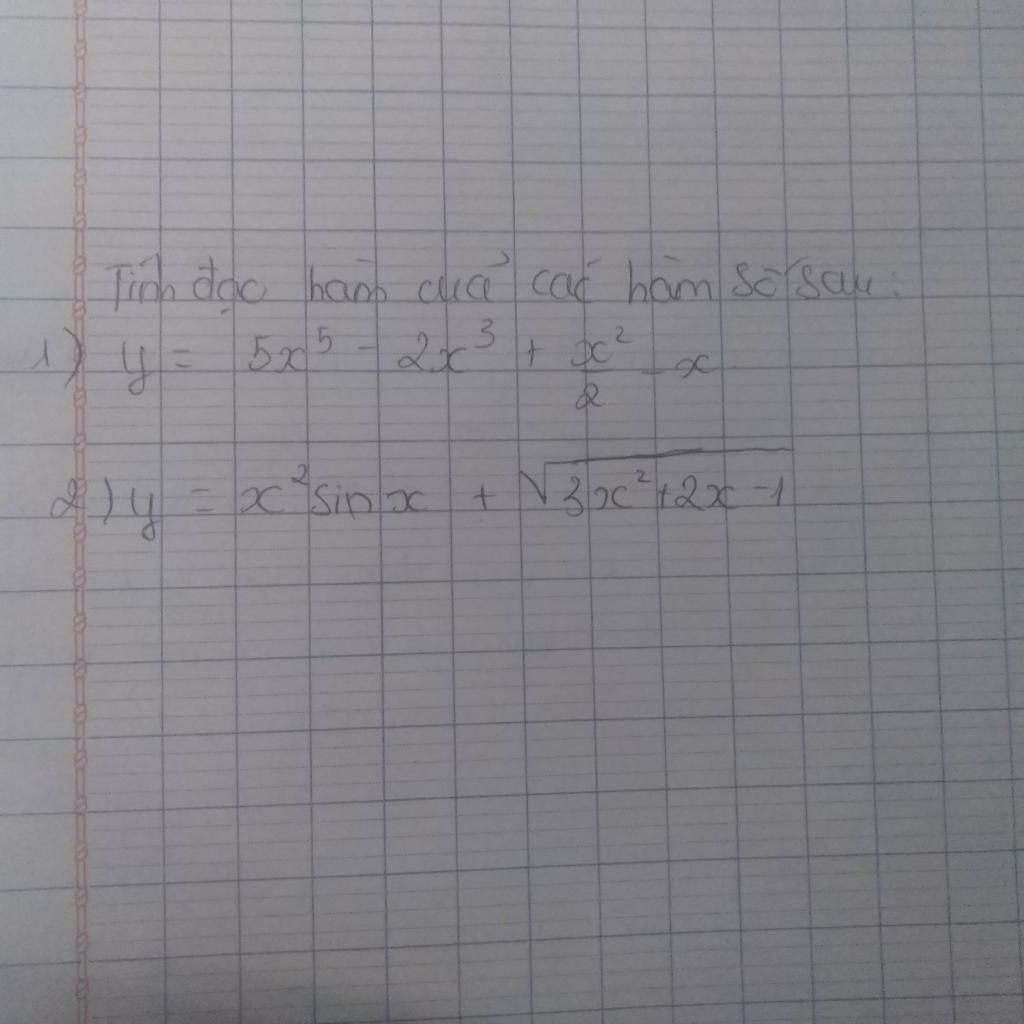 Tính đạo hàm của các hàm số sau:
1) y = 5x⁵ - 2x³ + x²/2 - x
2) y = x² sin x + √(3x² + 2x - 1)